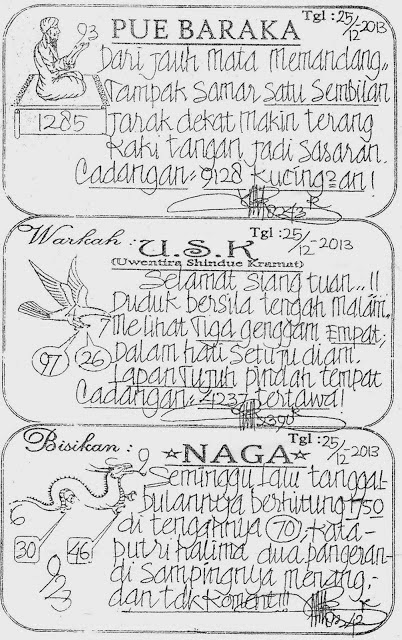 Tgl : 25/12-2013
PUE BARAKA
93
1285
Dari jauh mata memandang..
Tampak samar satu sembilan
Jarak dekat makin terang
Kaki tangan jadi sasaran.
Cadangan = 9128 Kucing²an!
Warkah :
U.S.K
Tgl : 25/12-2013
(Uwentira Shindue Kramat)
97
26
Selamat siang tuan..!!
Duduk bersila tengah malam.
Melihat Tiga genggam Empat;
Dalam hati setuju diam.
Lapan Tujuh pindah tempat
Cadangan = 4237 bertawa!
Bisikan :
NAGA
Tgl : 25/12-2013
9
30
46
9/3
Seminggu lalu tanggal-
bulannya berhitung 1750
di tengahnya (70); kata-
putri halima dua pangeran-
di sampingnya menang;-
dan tdk koment!!!